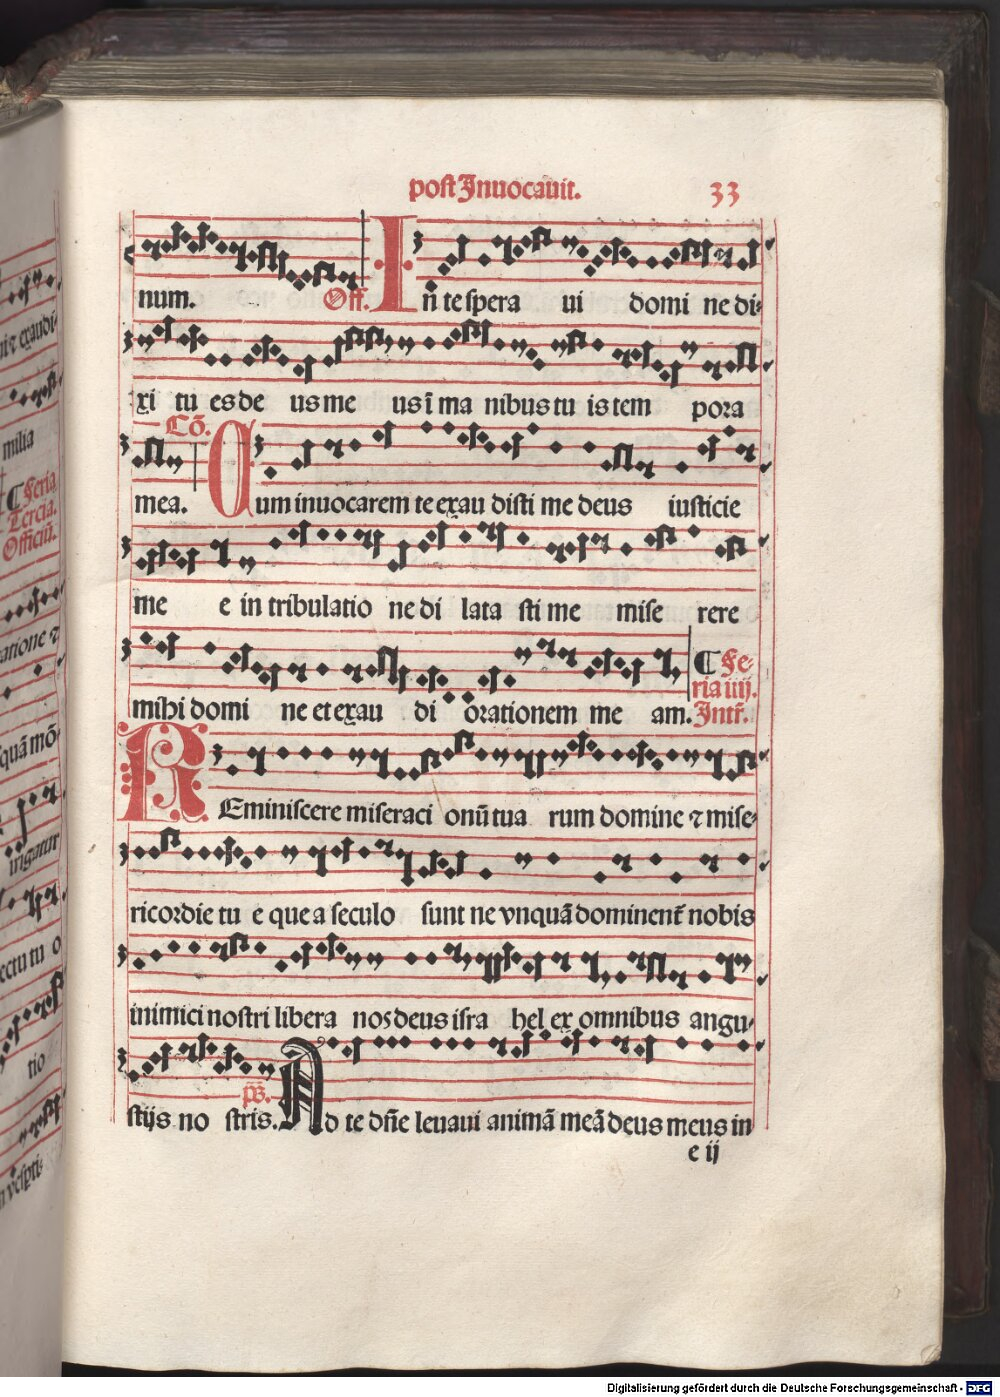 post Inuocauit. 33
num. Off. In te spera ui domi ne di-
xi tu es de us me us ī ma nibus tu is tem pora
Cō.
mea. Cum inuocarem te exau disti me deus iusticie
me e in tribulatio ne di lata sti me mise rere
¶ Fe-
ria iiij.
mihi domi ne et exau di orationem me am. Intr̄.
REminiscere miseraci onū tua rum domine ⁊ mise-
ricordie tu e que a seculo sunt ne vnquā dominent̄ nobis
inimici nostri libera nos deus isra hel ex omnibus angu-
stijs no stris. p̄s. Ad te dn̄e leuaui animā meā deus meus in
e ij
milia
¶ Feria
Tercia.
Officiū.
ratione ⁊
quā mō-
ectu tu o
tio
Digitalisierung gefördert durch die Deutsche Forschungsgemeinschaft - DFG